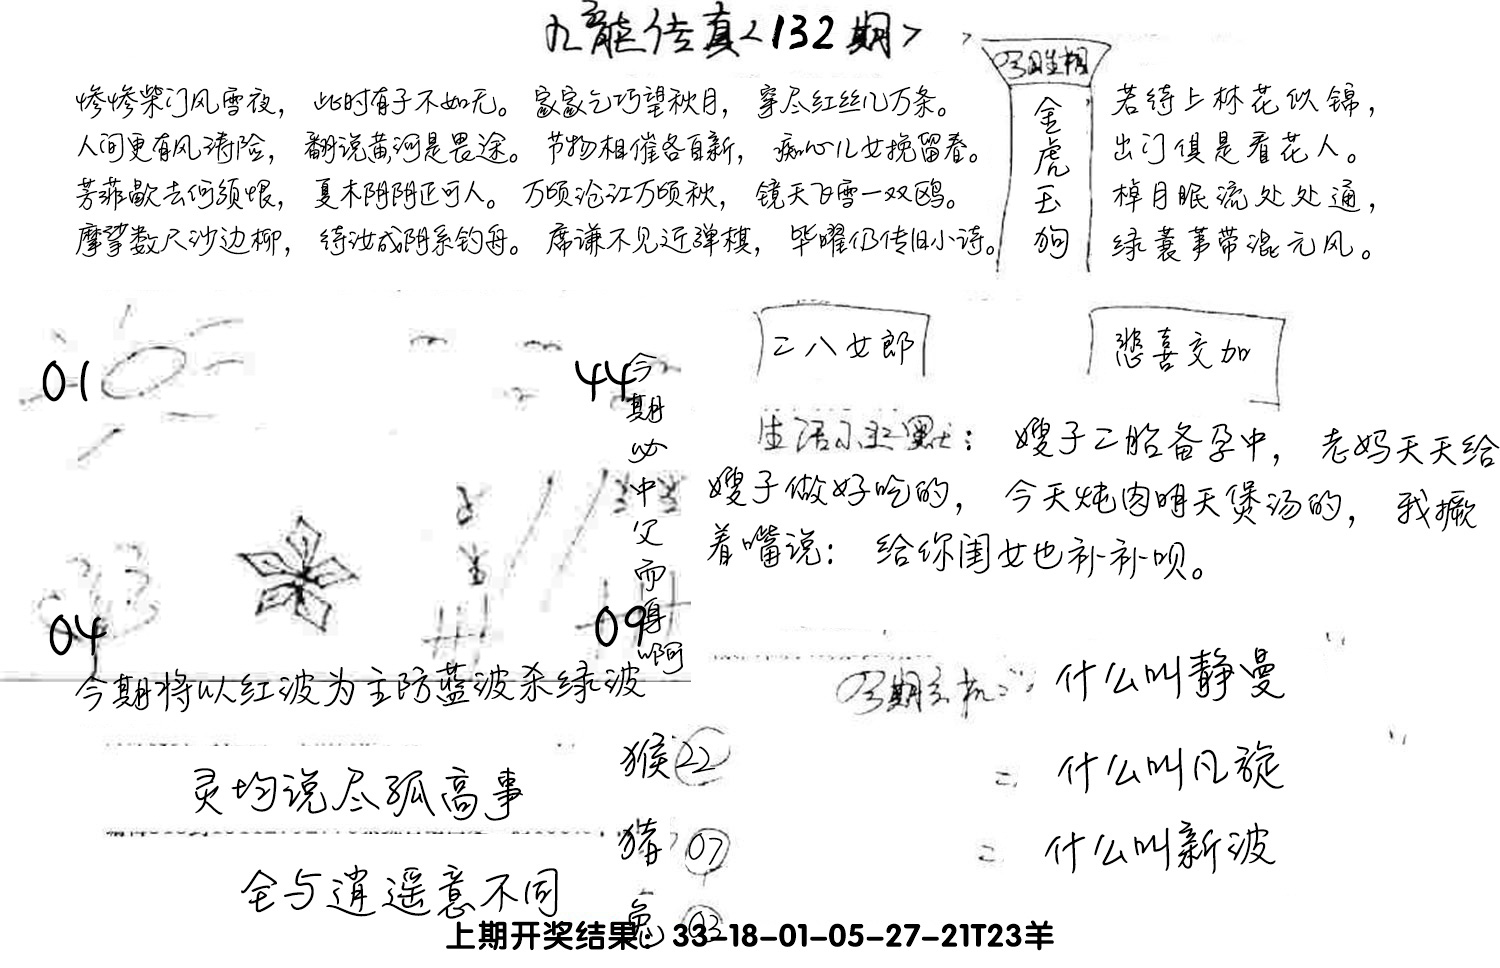 九龙传真<132期>
惨惨柴门风雪夜，此时有子不如无。家家乞巧望秋月，穿尽红丝几万条。
人间更有风涛险，翻说黄河是畏途。节物相催各自新，痴心儿女挽留春。
芳菲歇去何须恨，夏木阴阴正可人。万顷沧江万顷秋，镜天飞雪一双鸥。
摩挲数尺沙边柳，待汝成阴系钓舟。席谦不见近弹棋，毕曜仍传旧小诗。
生相
金虎玉狗
若待上林花似锦，
出门俱是看花人。
棹月眠流处处通，
绿蓑苇带混元风。
01
44
04
09
今期必中父而得啊
今期将以红波为主防蓝波杀绿波
二八女郎
悲喜交加
生活小幽默：嫂子二胎备孕中，老妈天天给
嫂子做好吃的，今天炖肉明天煲汤的，我撅
着嘴说：给你闺女也补补呗。
灵均说尽孤高事
全与逍遥意不同
猴22
猪07
兔03
什么叫静曼
二 什么叫凡旋
二 什么叫新波
上期开奖结果：33-18-01-05-27-21T23羊